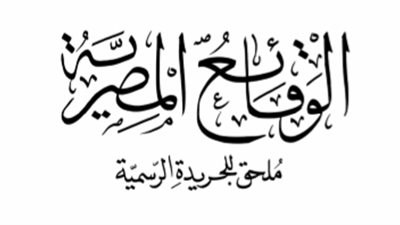 الوَقَائِعُ المِصْرِيّة
مُلحق للجريدةِ الرّسميّة